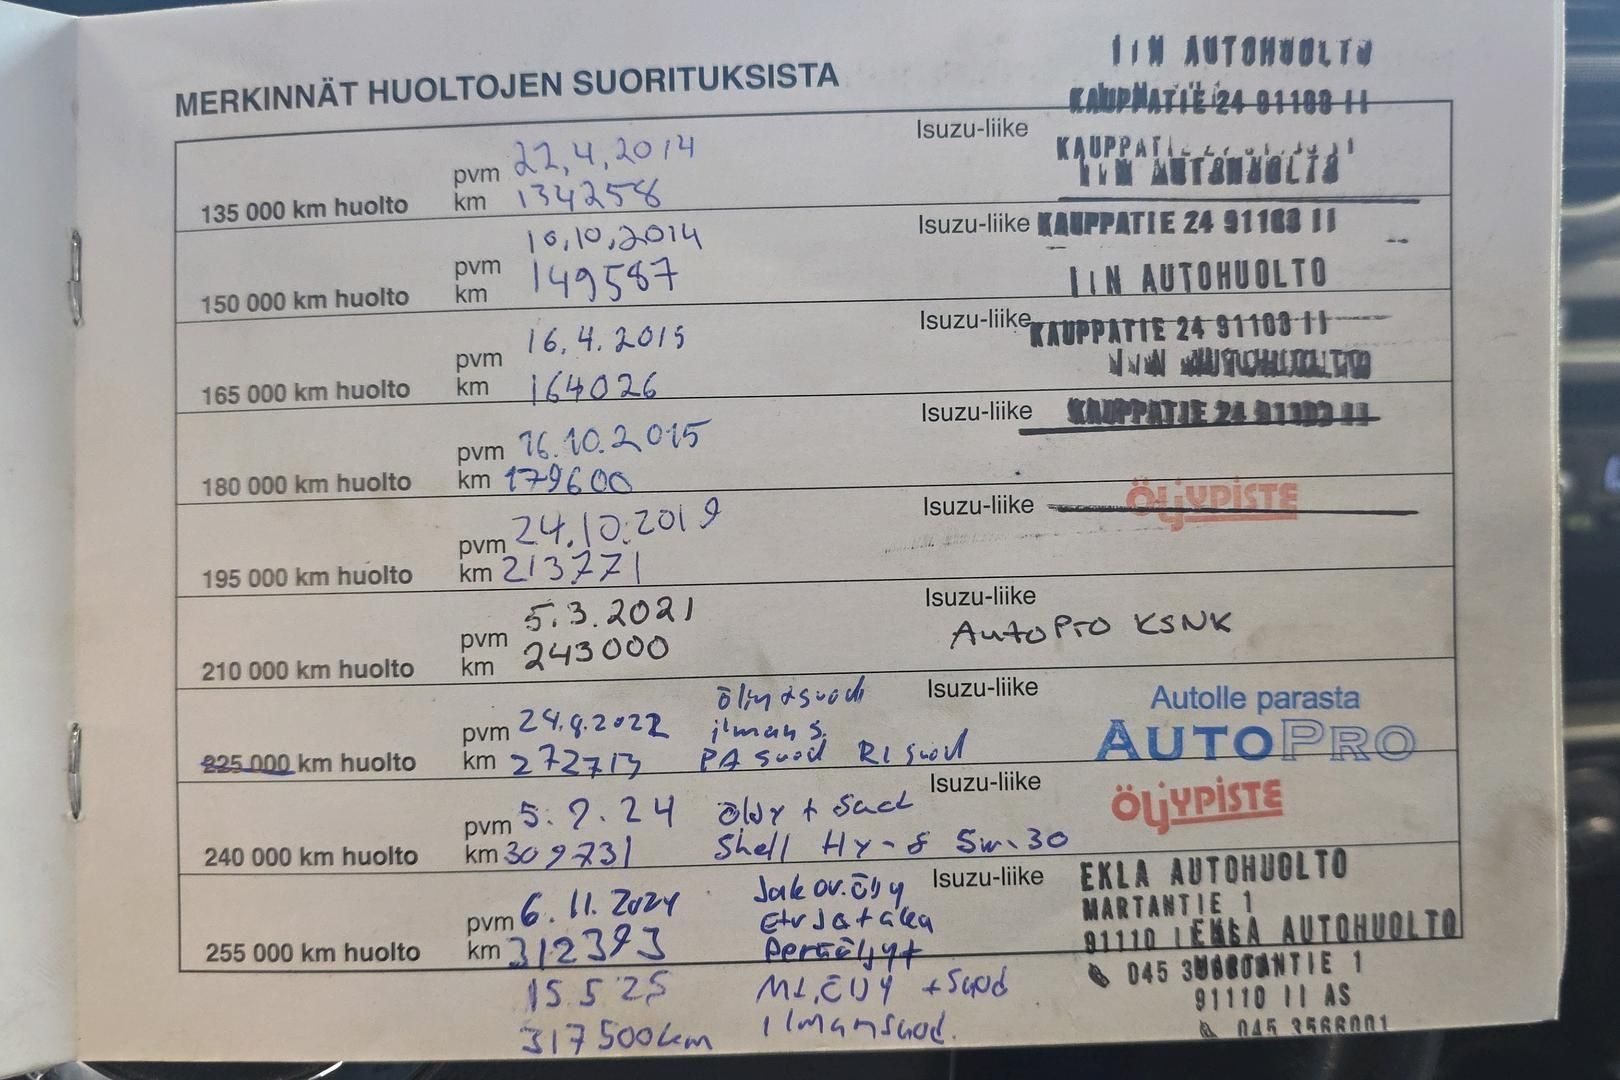 IIN AUTOHUOLTO
MERKINNÄT HUOLTOJEN SUORITUKSISTA
KAUPPATIE 24 91100 II
Isuzu-liike
pvm 22.4.2014
KAUPPATI
IIN AUTOHUOLTO
135 000 km huolto
km 134258
Isuzu-liike KAUPPATIE 24 91100 II
pvm 10.10.2014
IIN AUTOHUOLTO
150 000 km huolto
km 149587
Isuzu-liike KAUPPATIE 24 91100 II
pvm 16.4.2015
IIN AUTOHUOLTO
165 000 km huolto
km 164026
Isuzu-liike KAUPPATIE 24 91100 II
pvm 16.10.2015
180 000 km huolto
km 179600
Isuzu-liike ÖLJYPISTE
pvm 24.10.2019
195 000 km huolto
km 213771
Isuzu-liike
pvm 5.3.2021
AutoPro KSNK
210 000 km huolto
km 243000
Isuzu-liike Autolle parasta
pvm 24.8.2022
ilman s.
AUTOPRO
225 000 km huolto
km 272713
PA suod RI suod
Isuzu-liike ÖLJYPISTE
pvm 5.9.24
Öljy + Suod
240 000 km huolto
km 309731
Shell Hx-8 5w-30
Isuzu-liike EKLA AUTOHUOLTO
Jakov.öljy
MARTANTIE 1
pvm 6.11.2024
Etu ja taka
91110 I EKLA AUTOHUOLTO
255 000 km huolto
km 312393
Peräöljyt
045 3 MARTANTIE 1
15.5.25
+ Suod
91110 II AS
317500km
Ilmansuod.
045 3566001